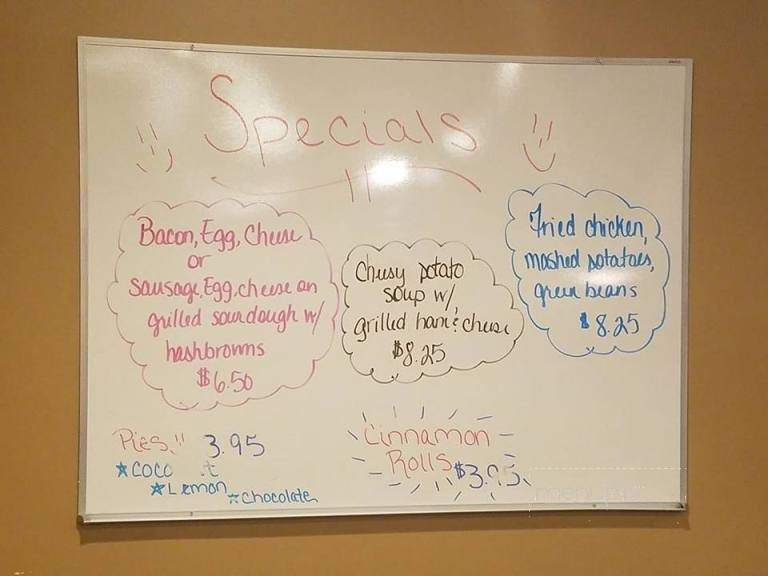 Specials
Bacon, Egg, Cheese
or
Sausage, Egg, cheese on
grilled sourdough w/
hashbrowns
$6.50
Cheesy potato
soup w/
grilled ham & cheese
$8.25
Fried chicken,
mashed potatoes,
green beans
$8.25
Pies!! 3.95
Lemon
Chocolate
Cinnamon
Rolls